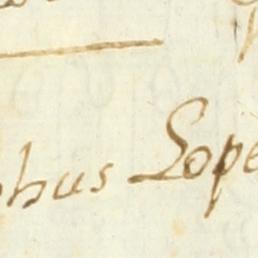 phus Lope